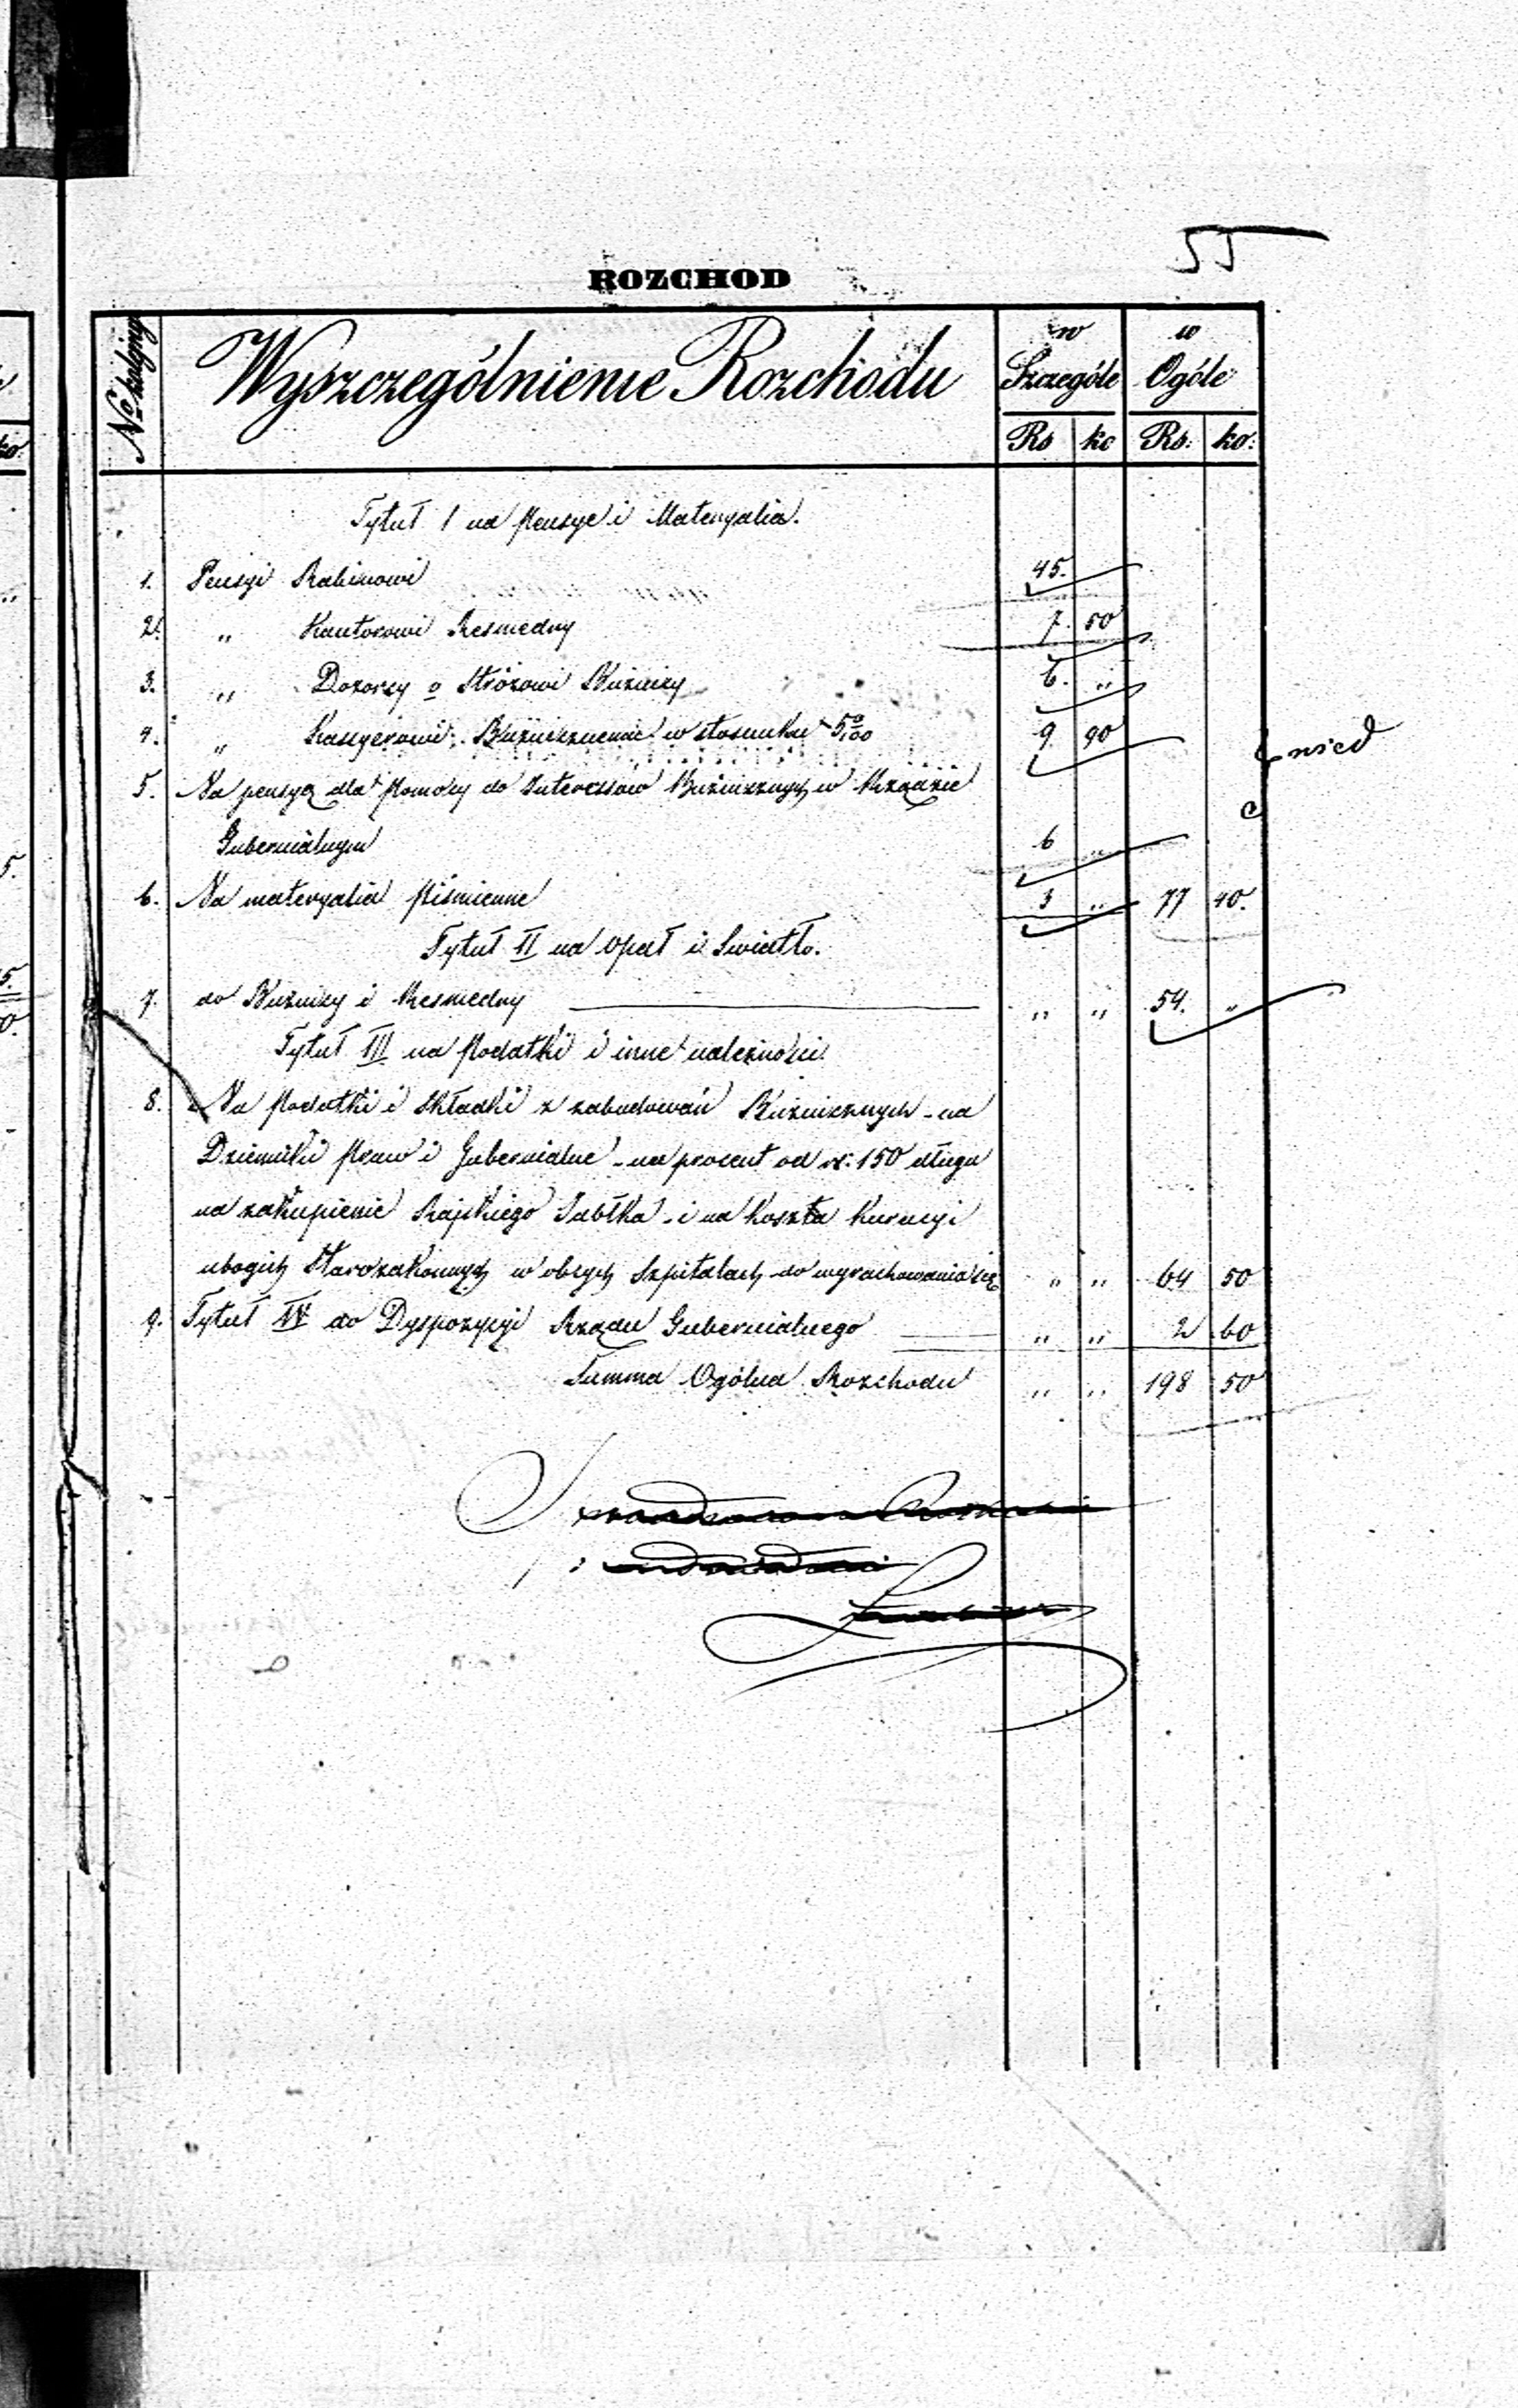 55
ROZCHOD
No kolejny
Wyszczególnienie Rozchodu
w Szczególe
w Ogóle
Rs kc Rs: ko:
Tytuł I na pensye i Materyalia.
1. Pensyi Rabinowi 45.
2. „ Kantorowi Resnedny 7. 50
3. „ Dozorcy o Stróżowi Bużnicy 6. „
4. „ Kasyerowi Bużnicznemu w stosunku 5%100 9. 90
5. Na pensyą dla pomocy do Interessów Bużnicznych w Rządzie
Gubernialnym 6 „
6. Na materyalia piśmienne 3 „ 77 40.
Tytuł II na opał i Swiatło.
7. do Bużnicy i Resnedny „ „ 54. „
Tytuł III na podatki i inne należności
8. Na podatki i składki z zabudowań Bużnicznych - na
Dzienniki praw i Gubernialne - na procent od rs: 150 długu
na zakupienie Rajskiego Jabłka - i na koszta kuracyi
ubogich Starozakonnych w obcych Szpitalach do wyrachowania się „ „ 64 50
9. Tytuł IV do Dyspozycyi Rządu Gubernialnego „ „ 2 60
Summa Ogólna Rozchodu „ „ 198 50